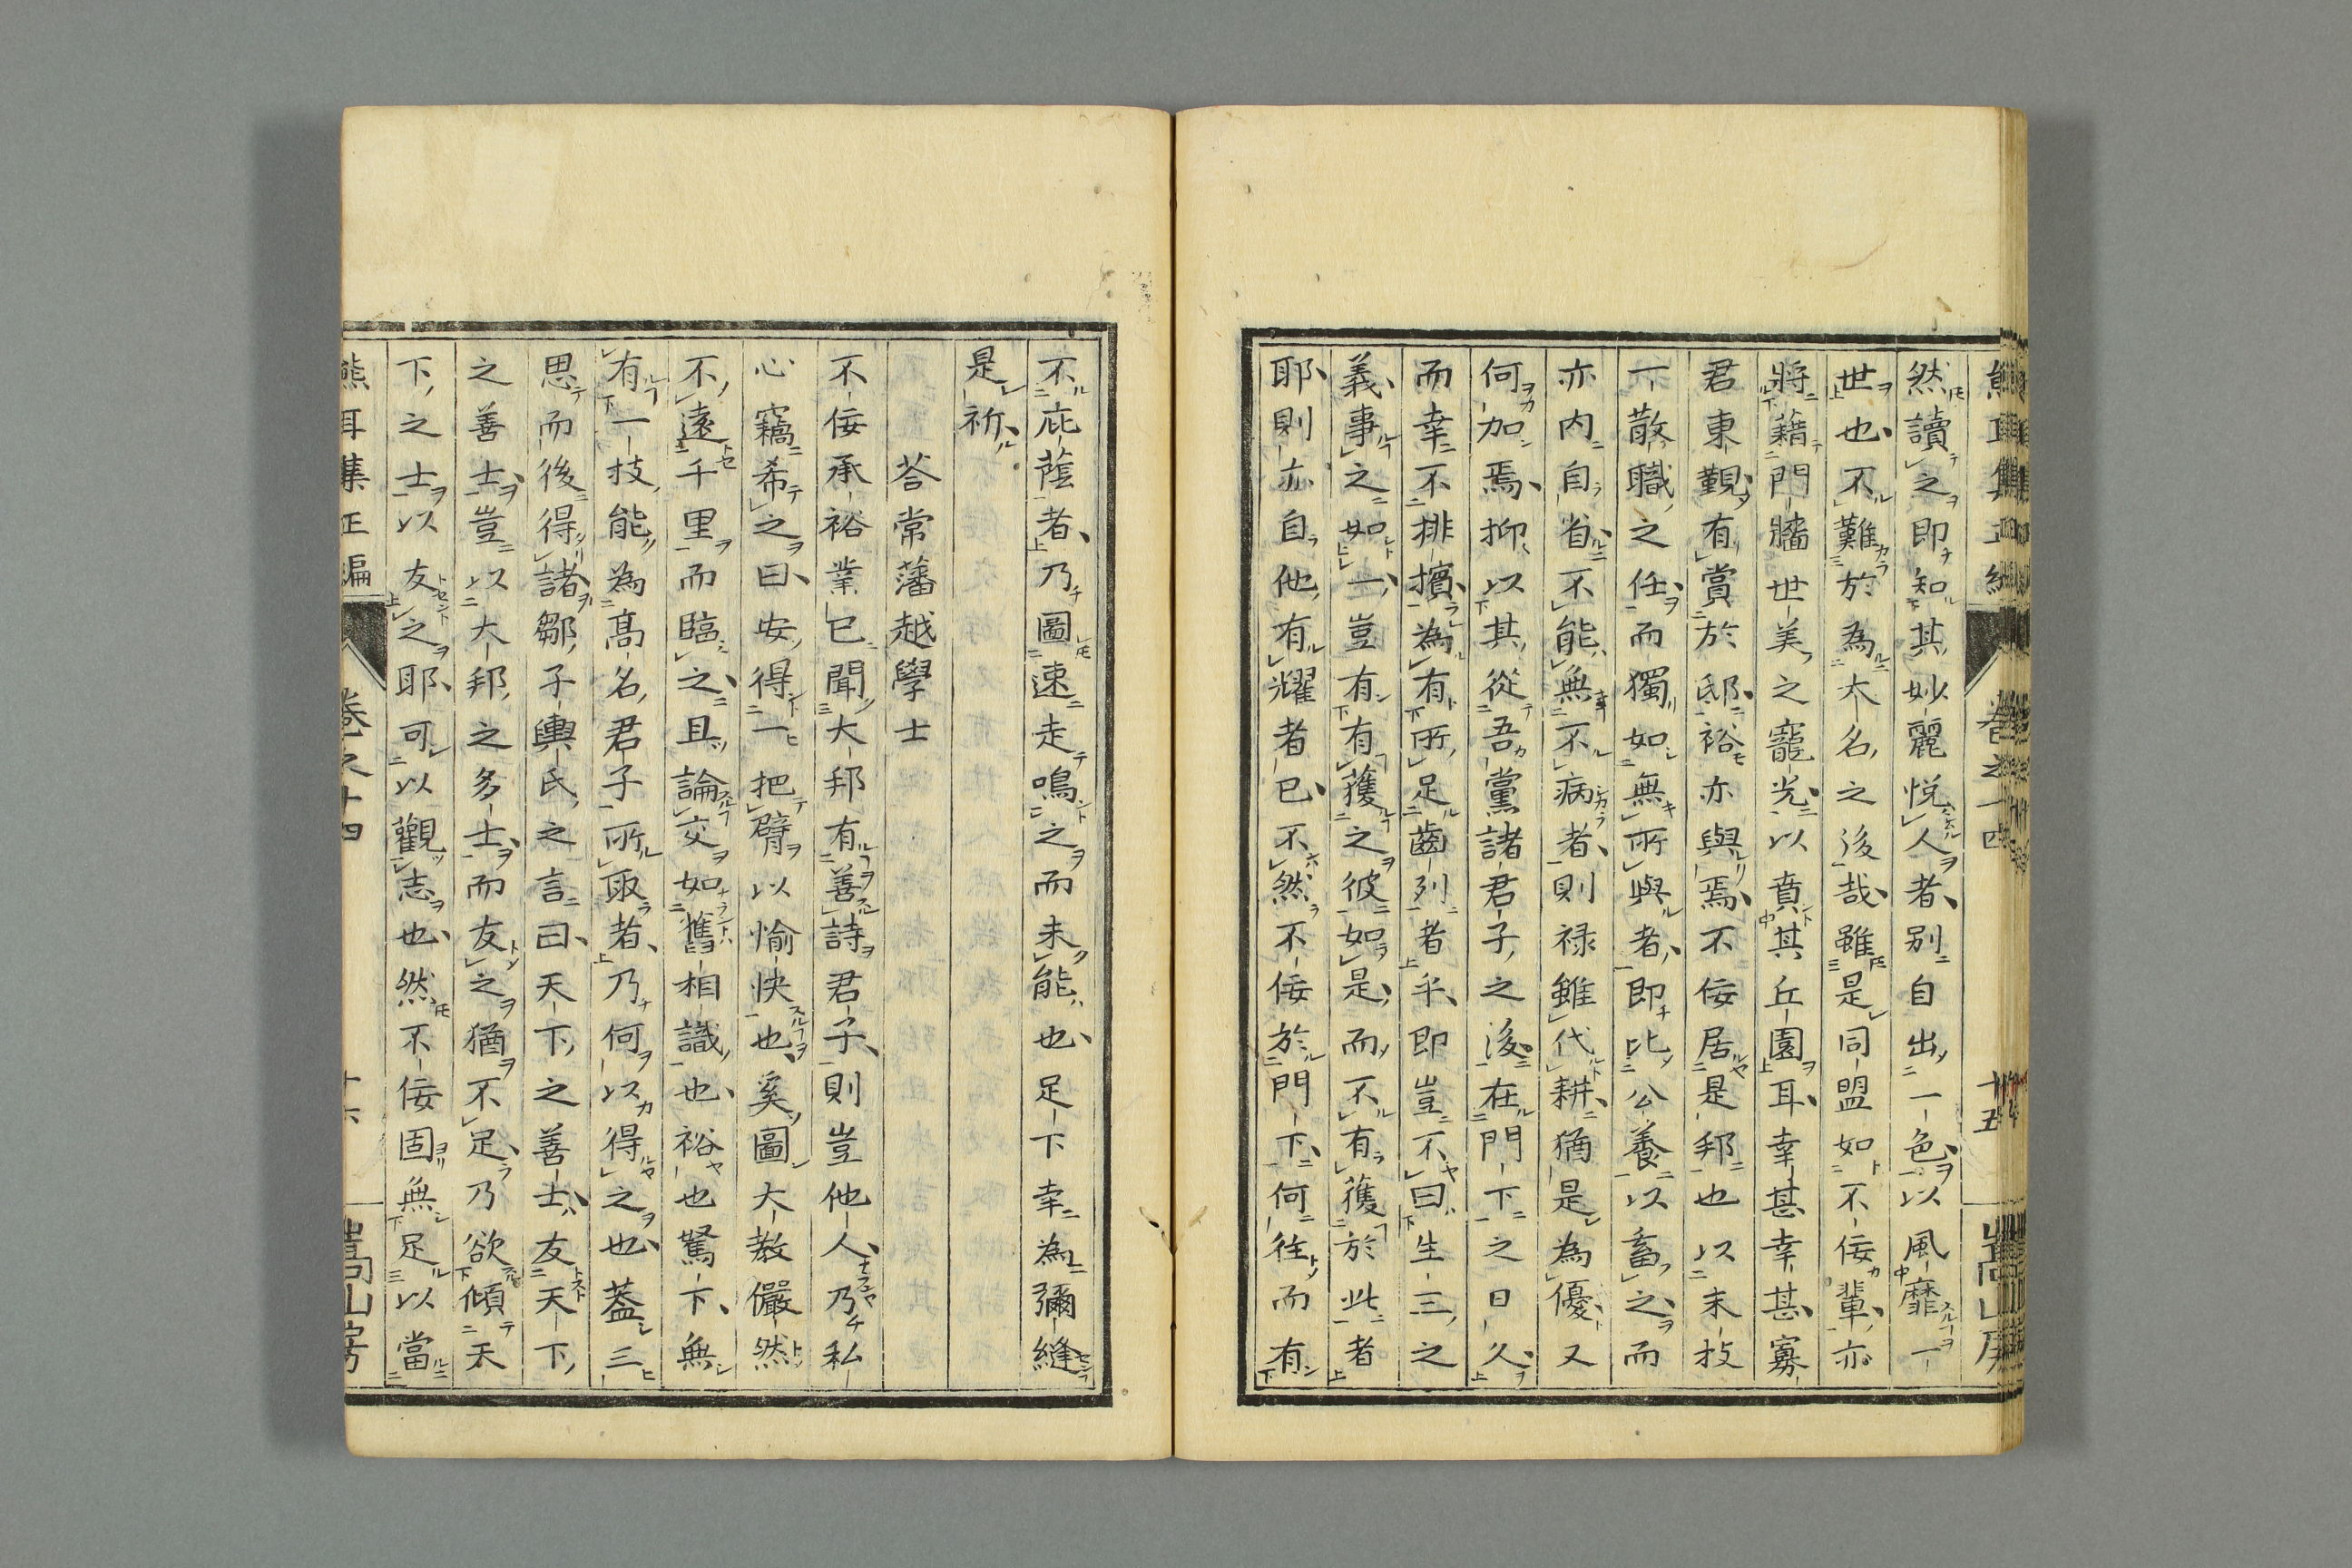 然讀之即知其妙麗悦人者别自出一色以風靡一
世也不難於為大名之後哉雖是同盟如不佞輩亦
將藉門牆世美之寵光以賁其丘園耳幸甚幸甚寡
君東覲有賞於邸裕亦與焉不佞居是邦也以末技
一散職之任而獨如無所與者即比公養以畜之而
亦内自省不能無不病者則禄雖代耕猶是為優又
何加焉抑以其從吾黨諸君子之後在門下之日久
而幸不排擯為有所足齒列者乎即豈不曰生三之
義事之如一豈有有獲之彼如是而不有獲於此者
耶則亦自他有耀者已不然不佞於門下何往而有
不庇蔭者乃圖速走鳴之而未能也足下幸為彌縫
是祈
荅常藩越學士
不佞承裕業已聞大邦有善詩君子則豈他人乃私
心竊希之曰安得一把臂以愉快也奚圖大教儼然
不遠千里而臨之且論交如舊相識也裕也駑下無
有一技能為髙名君子所取者乃何以得之也葢三
思而後得諸鄒子輿氏之言曰天下之善士友天下
之善士豈以大邦之多士而友之猶不足乃欲傾天
下之士以友之耶可以觀志也然不佞固無足以當
熊耳集正編
卷之十四
嵩山房